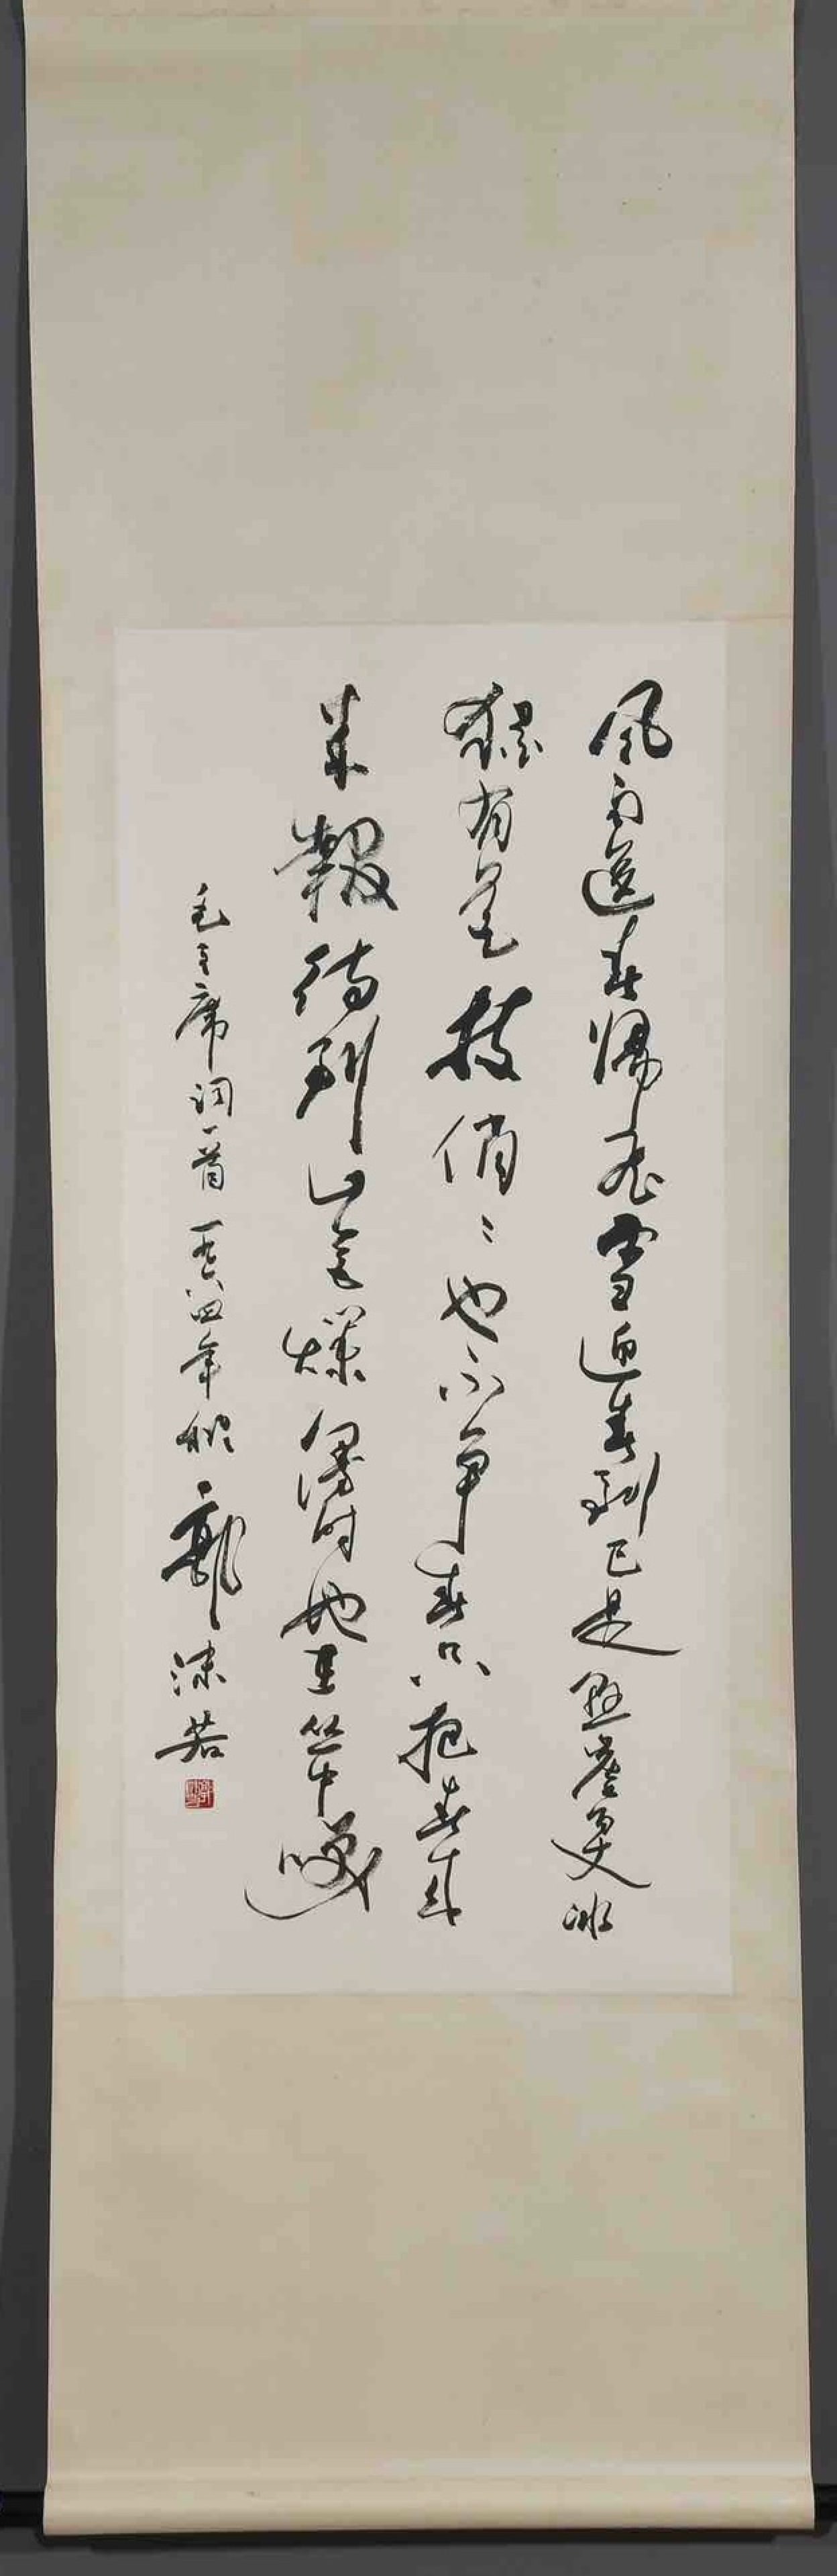 風雨送春歸飛雪迎春到已是懸崖百丈冰
獨有花枝俏〻也不争春只把春
來報待到山花爛漫時她在丛中咲
毛主席词一首 一九六四年秋 郭沫若